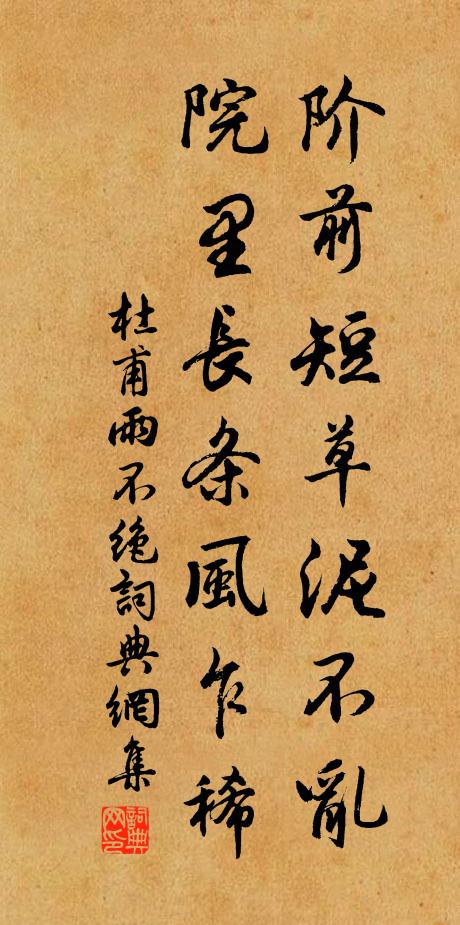 阶前短草泥不亂
院里長条風乍稀
杜甫雨不绝詞典網集
詞典网印